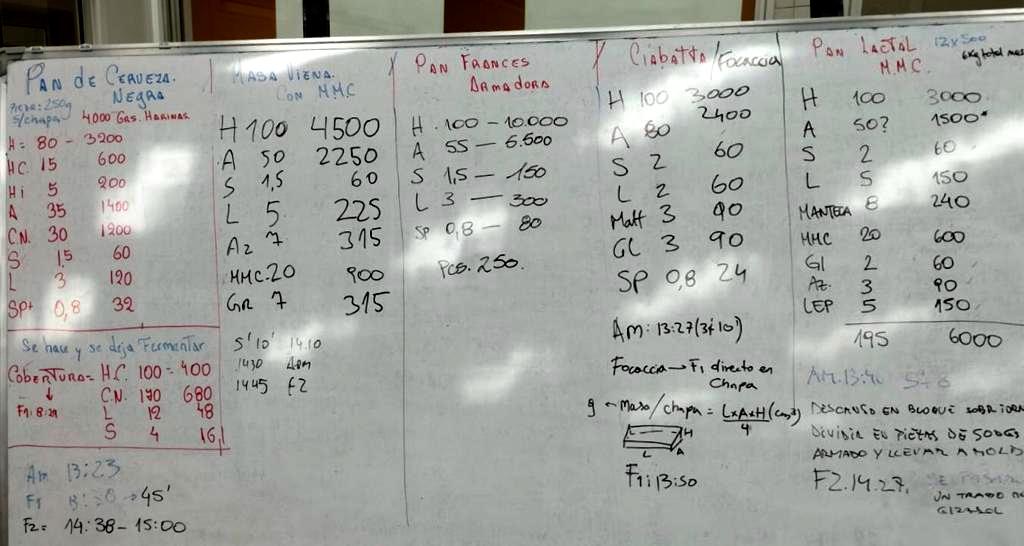 PAN DE CERVEZA.
NEGRA
PIEZA: 250g
S/chapa
4000 Gas. HARINAS
H = 80 - 3200
HC. 15 600
Hi 5 200
A 35 1400
C.N. 30 1200
S 1,5 60
L 3 120
SP+ 0,8 32
Se hace y se deja Fermentar
COBERTURA = H.C. 100 = 400
C.N. 170 680
F1: 8:29
L 12 48
S 4 16,1
Am 13:23
F1 → 45'
F2 = 14:38 - 15:00
MASA VIENA.
CON M.M.C
H 100 4500
A 50 2250
S 1,5 60
L 5 225
Az 7 315
MMC. 20 900
Gr 7 315
5' 10' 14.10
1430 Arm
1445 F2
PAN FRANCES
ARMADORA
H . 100 - 10.000
A 55 - 5.500
S 1,5 - 150
L 3 - 300
SP 0,8 - 80
Pcs. 250.
CIABATTA/FOCACCIA
H 100 3000
A 80 2400
S 2 60
L 2 60
Malt 3 90
GL 3 90
SP 0,8 24
Am: 13:27 (3' 10')
Focaccia → F1 directo en
Chapa
g ← Masa/chapa = LxAxH (cm3)
4
L H
L A
F1: 13:50
PAN LACTAL
M.M.C.
12 x 500
6kg total masa
H 100 3000
A 50? 1500*
S 2 60
L 5 150
MANTECA 8 240
MMC 20 600
Gl 2 60
Az. 3 90
LEP 5 150
195 6000
Am. 13:40
DESCANSO EN BLOQUE
DIVIDIR EN PIEZAS DE 500GS
ARMADO Y LLEVAR A MOLD
F2. 14.27.
UN TRAPO
GIRASOL